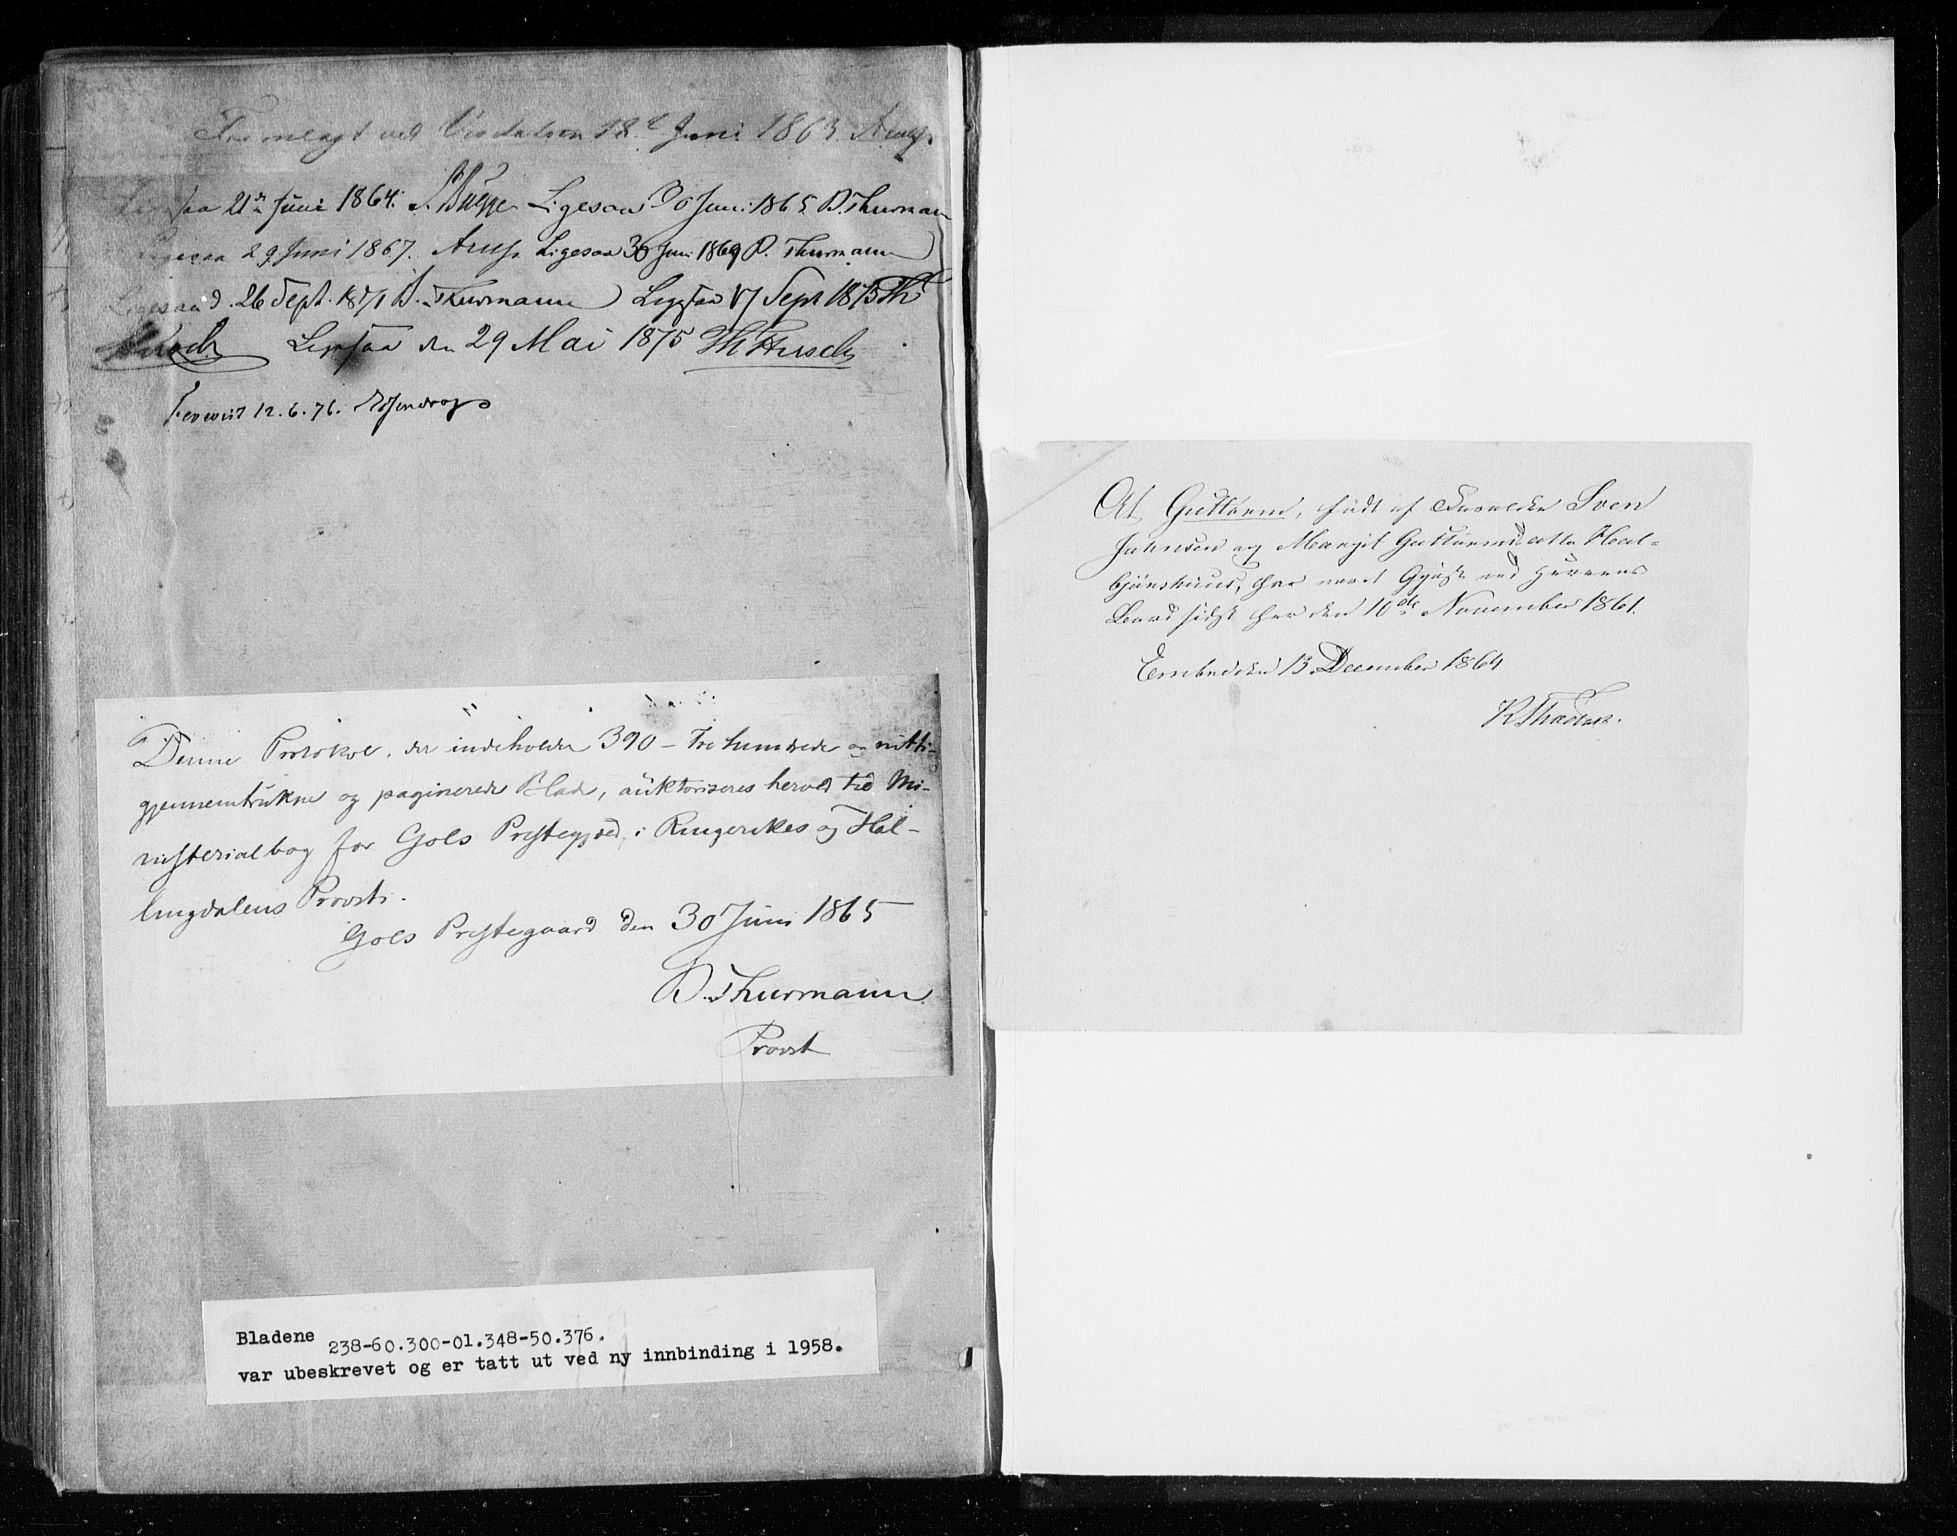 Fremlagt ved Visitatsen 12te Juni 1863. Arup.
Ligesaa 21de Juni 1864. S. Bugge Ligesaa 30 Juni 1865 D. Thurmann
Ligesaa 29 Juni 1867. Arup. Ligesaa 30 Juni 1869 D. Thurmann
Ligesaa d. 26 Sept. 1871 D. Thurmann Ligesaa 17 Sept 1873 Th
Ligesaa den 29 Mai 1875
Revideret 12.6.76.
Denne Protokol, der indeholder 390 – tre hundrede og nitti –
gjennemtrukne og paginerede Blade, auktoriseres herved til Mi-
nisterialbog for Gols Prestegjeld i Ringerikes og Hal-
lingdalens Provsti.
Gols Prestegaard den 30 Juni 1865
D. Thurmann
Provst
Bladene 238-60.300-01.348-50.376.
var ubeskrevet og er tatt ut ved ny innbinding i 1958.
At Guttorm, født af Forældre Sven
Johnsen og Margit Guttormsdatter Hal-
bjønshuus, har været Gjæst ved Herrens
Bord sidst her den 10de November 1861.
13 December 1864